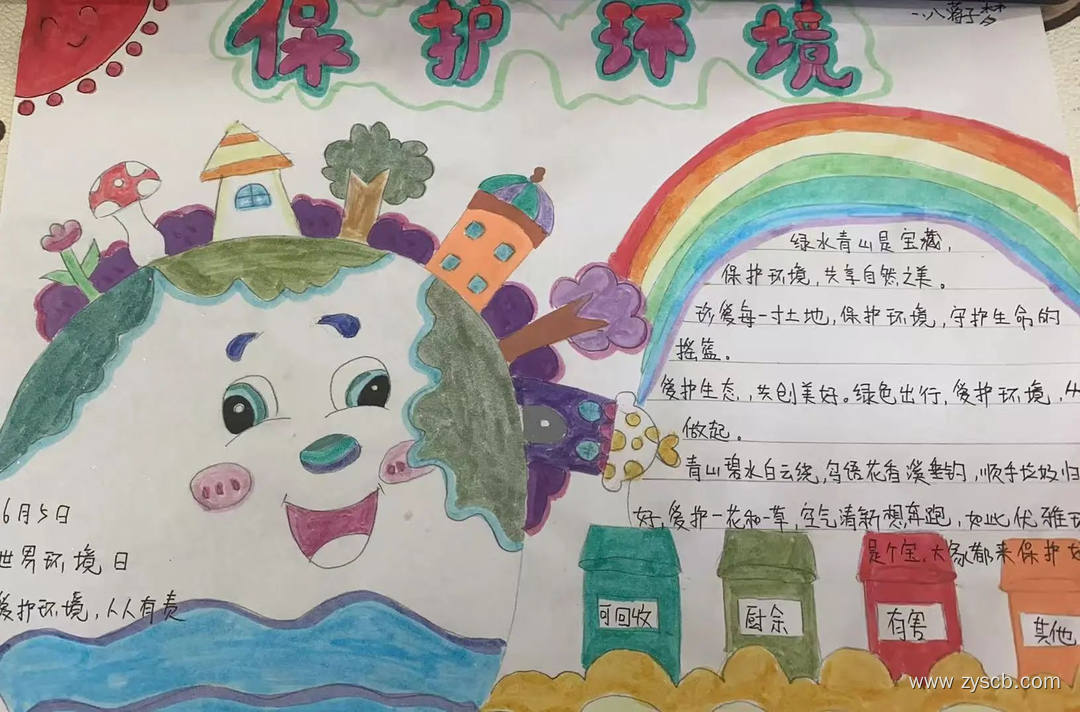 保护环境
一.八 蒋子梦
绿水青山是宝藏,
保护环境,共享自然之美。
珍爱每一寸土地,保护环境,守护生命的
摇篮。
爱护生态,共创美好。绿色出行,爱护环境,从
做起。
青山碧水白云绕,鸟语花香溪垂钓,顺手垃圾归
好,爱护一花和一草,空气清新想奔跑,如此优雅环
是个宝,大家都来保护好
6月5日
世界环境日
爱护环境,人人有责
可回收
厨余
有害
其他
www.zyscb.com